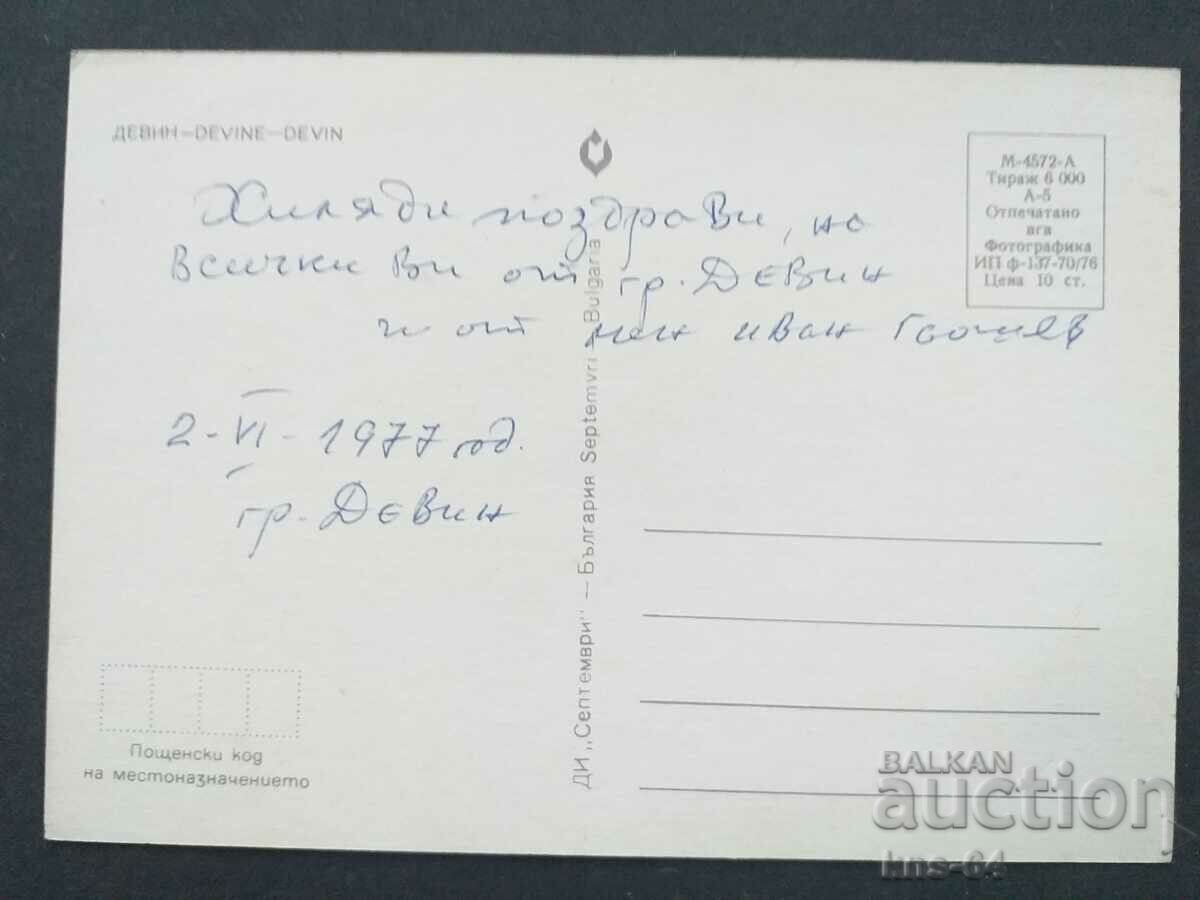 ДЕВИН—DEVINE—DEVIN
Хиляди поздрави, на
Всички Ви от гр. ДЕВин
и от мен иван
2-VI-1977 год.
гр. ДЕВин
М-4572-А
Тираж 6 000
А-5
Отпечатано
във
Фотографика
ИП ф-137-70/76
Цена 10 ст.
ДИ „Септември" — България Septemvri — Bulgaria
Пощенски код
на местоназначението
BALKAN
auction
kns-64